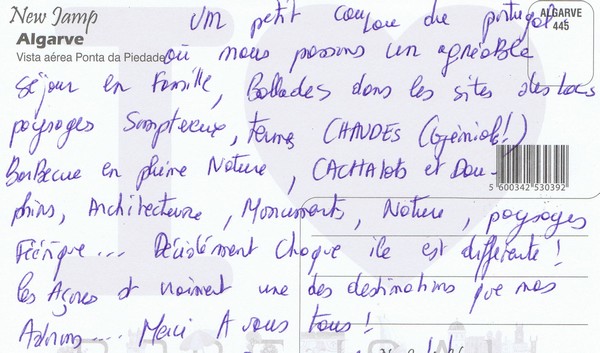 New Jamp
Algarve
Vista aérea Ponta da Piedade
ALGARVE
445
Un petit coucou du portugal
où nous passons un agréable
séjour en Famille, Ballades dans les sites des lacs
paysages Somptueux, termes CHAUDES (Géniale!)
BarBecue en pleine Nature, CACHAlots et Dau-
phins, Architecture, Monuments, Nature, paysages
Féérique... Décidément chaque ile est différente!
les Açores st vraiment une des destinations que nos
Adorons.... Merci A vous tous!
5 600342 530392